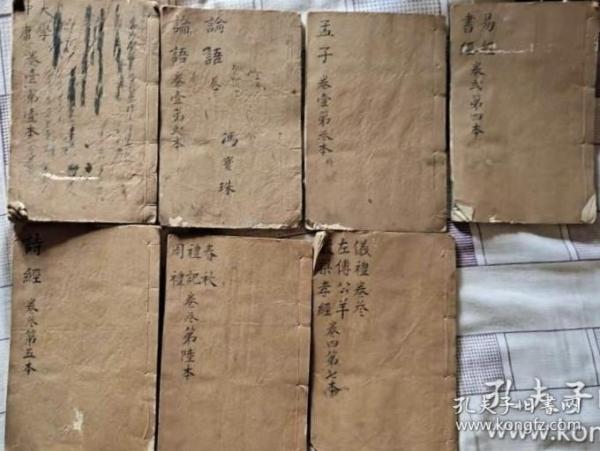 大學
中庸 卷壹第壹本
論語 卷
論語 卷壹第貳本
馮寶珠
孟子 卷壹第叁本
易經
書經 卷貳第四本
詩經 卷叁第五本
春秋
禮記
周禮 卷叁第陸本
儀禮卷叁
左傳公羊
穀梁孝經 卷四第七本
孔夫子
孔夫子旧書网
www.kongfz.com